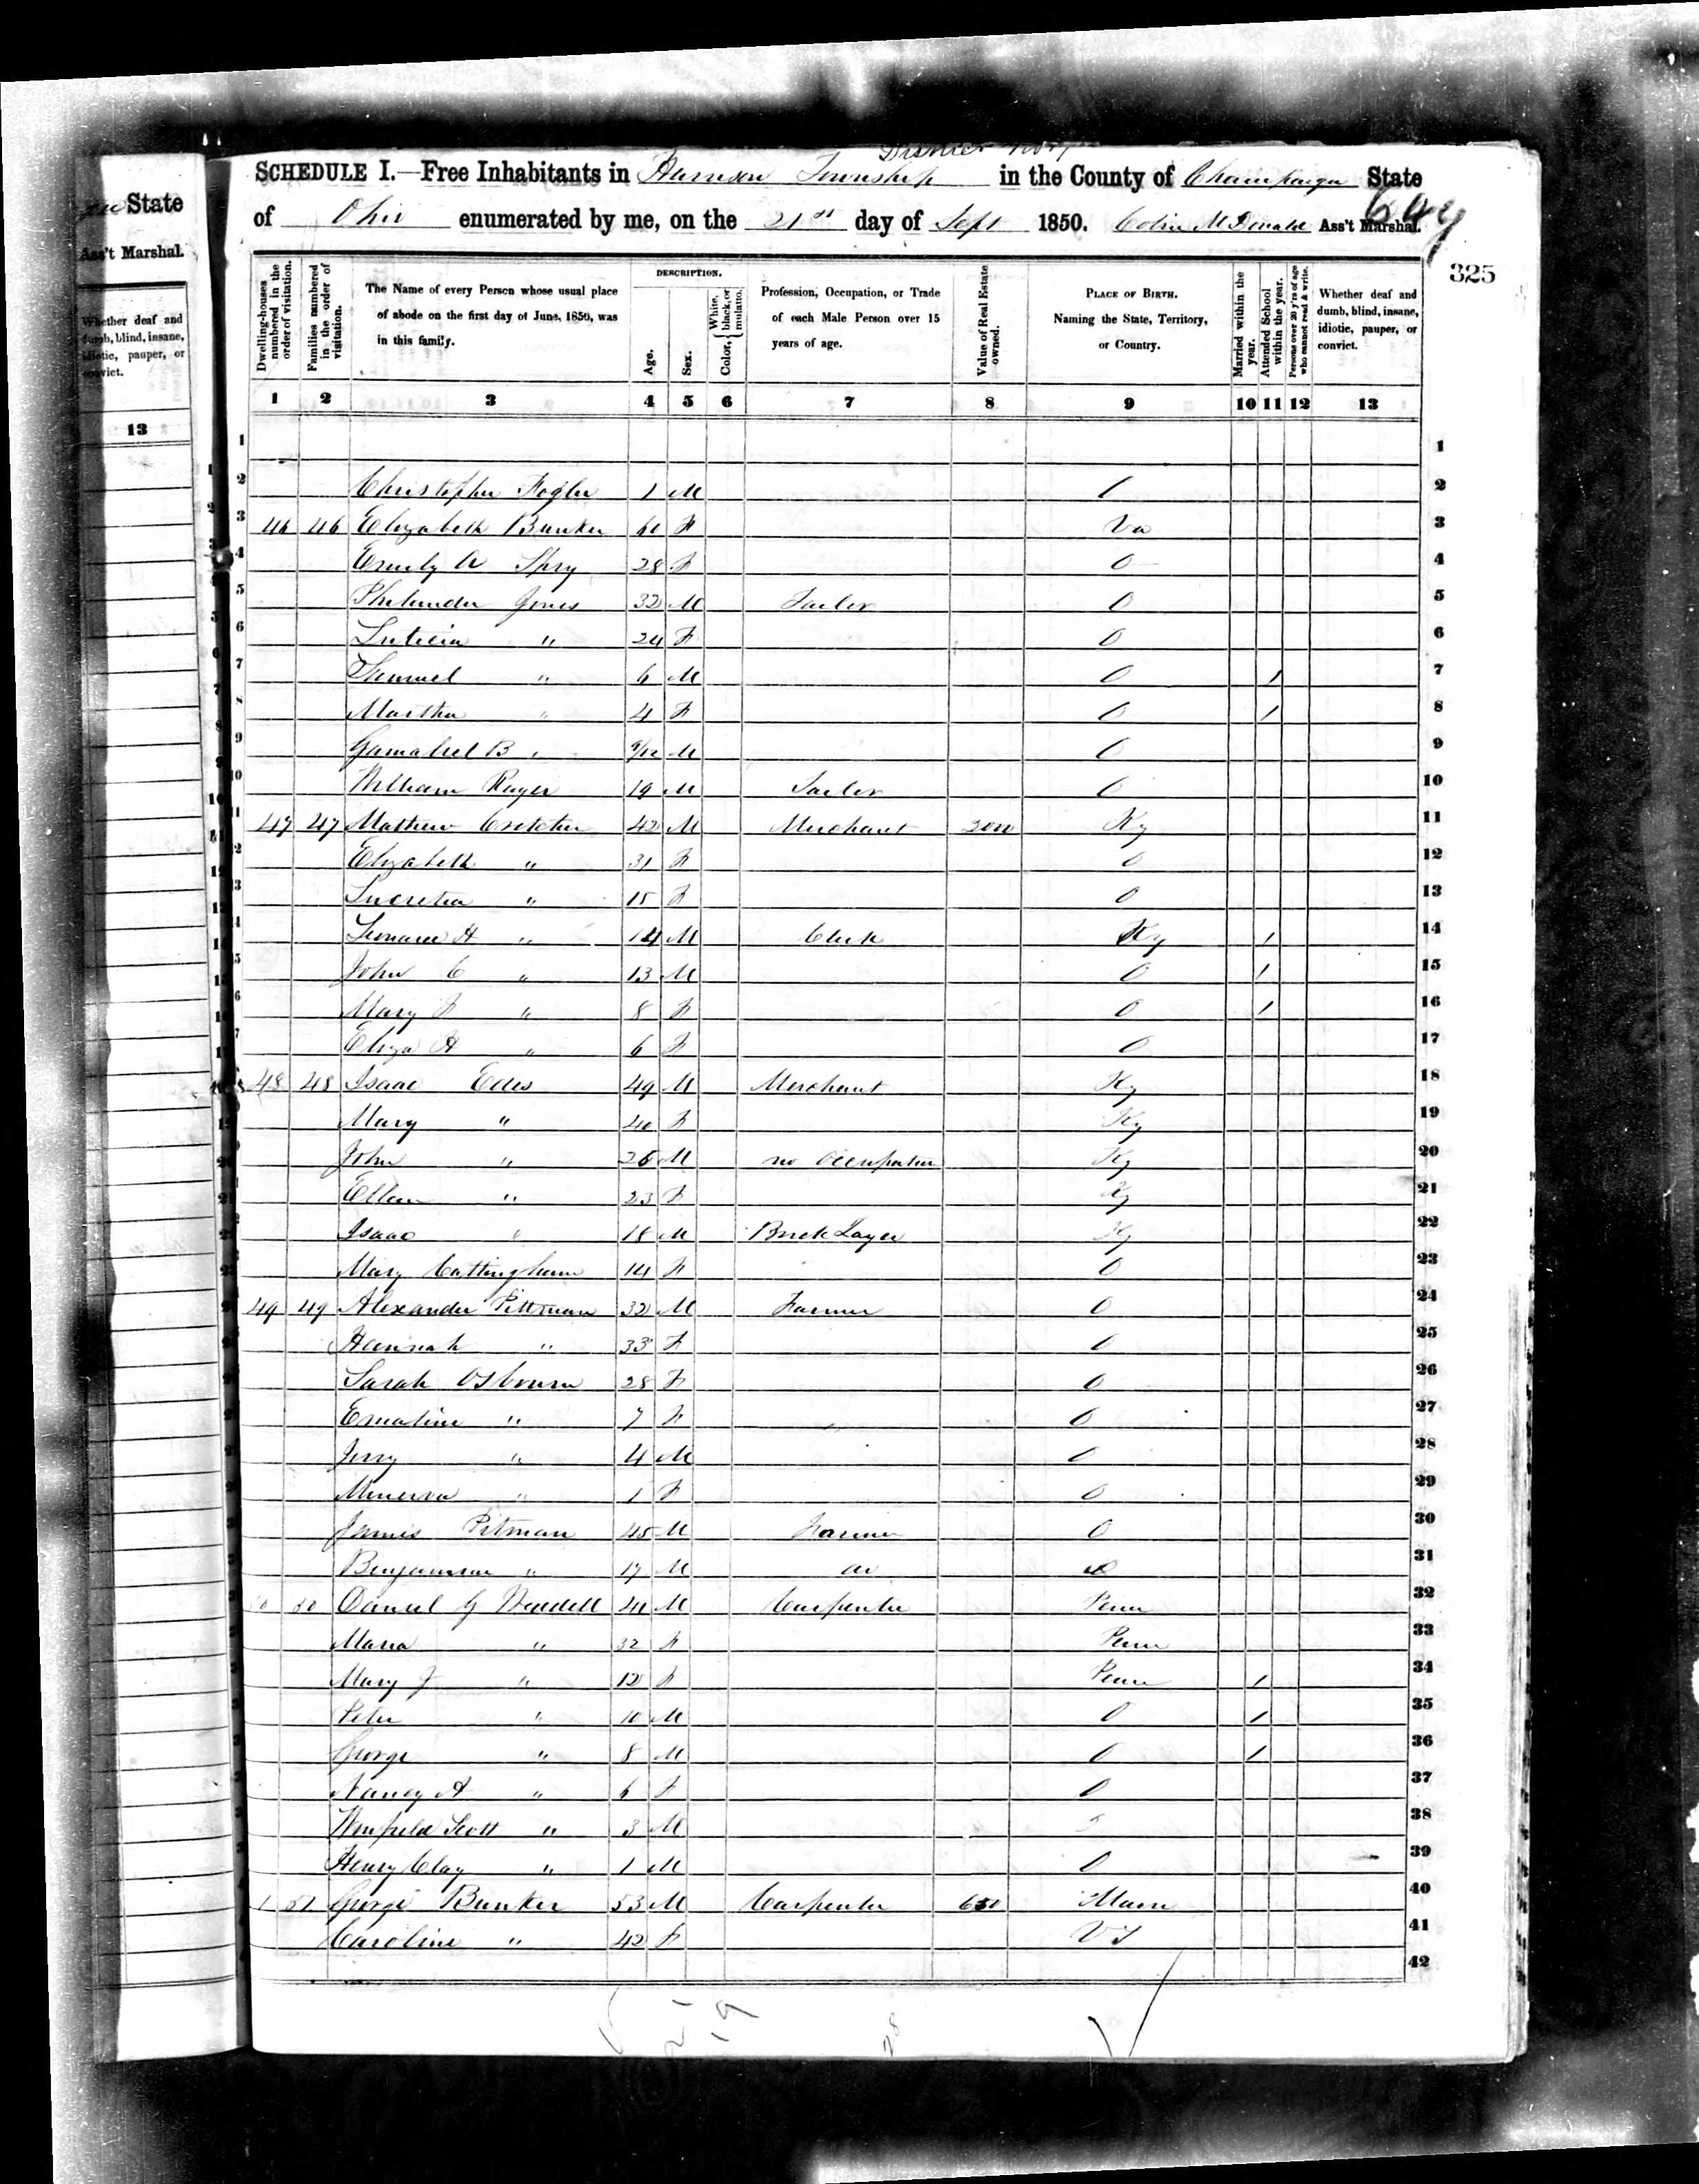 State
Ass't Marshal.
Whether deaf and dumb, blind, insane, idiotic, pauper, or convict.
13
District No
SCHEDULE I.—Free Inhabitants in Harrison Township in the County of Champaign State
of Ohio enumerated by me, on the 21st day of Sept 1850. Colin McDonald Ass't Marshal.
325
Dwelling-houses numbered in the order of visitation.
Families numbered in the order of visitation.
The Name of every Person whose usual place of abode on the first day of June, 1850, was in this family.
DESCRIPTION.
Age.
Sex.
Color, White, black, or mulatto.
Profession, Occupation, or Trade of each Male Person over 15 years of age.
Value of Real Estate owned.
PLACE OF BIRTH. Naming the State, Territory, or Country.
Married within the year.
Attended School within the year.
Persons over 20 y'rs of age who cannot read & write.
Whether deaf and dumb, blind, insane, idiotic, pauper, or convict.
1 2 3 4 5 6 7 8 9 10 11 12 13
1 1
2 Christopher Fogler 1 M O 2
3 46 46 Elizabeth Bunker 60 F Va 3
4 Emily A Spry 28 F O 4
5 Philander Jones 32 M Tailor O 5
6 Luticia " 24 F O 6
7 Samuel " 6 M O / 7
8 Martha " 4 F O / 8
9 Gamaliel B " 9/12 M O 9
10 William 19 M Tailor O 10
11 47 47 Mathew Cretcher 42 M Merchant 2000 Ky 11
12 Elizabeth " 31 F O 12
13 Lucretia " 15 F O 13
14 H " 14 M Clerk Ky / 14
15 John C " 13 M O / 15
16 Mary " 8 F O / 16
17 Eliza A " 6 F O 17
18 48 48 Isaac 49 M Merchant Ky 18
19 Mary " 40 F Ky 19
20 John " 26 M no Occupation Ky 20
21 Ellen " 23 F Ky 21
22 Isaac " 18 M Brick Layer Ky 22
23 Mary Cottingham 14 F O 23
24 49 49 Alexander Pittman 32 M Farmer O 24
25 Hannah " 33 F O 25
26 Sarah Osbourn 28 F O 26
27 Emaline " 7 F O 27
28 Jerry " 4 M O 28
29 Minerva " 1 F O 29
30 James Pitman 45 M Farmer O 30
31 Benjamin " 17 M O 31
32 50 50 Daniel G 41 M Carpenter Penn 32
33 Maria " 32 F Penn 33
34 Mary J " 12 F Penn / 34
35 Peter " 10 M O / 35
36 George " 8 M O / 36
37 Nancy A " 6 F O 37
38 Winfield Scott " 3 M 38
39 Henry Clay " 1 M O 39
40 51 George Bunker 53 M Carpenter 650 Main 40
41 Caroline " 42 F VT 41
42